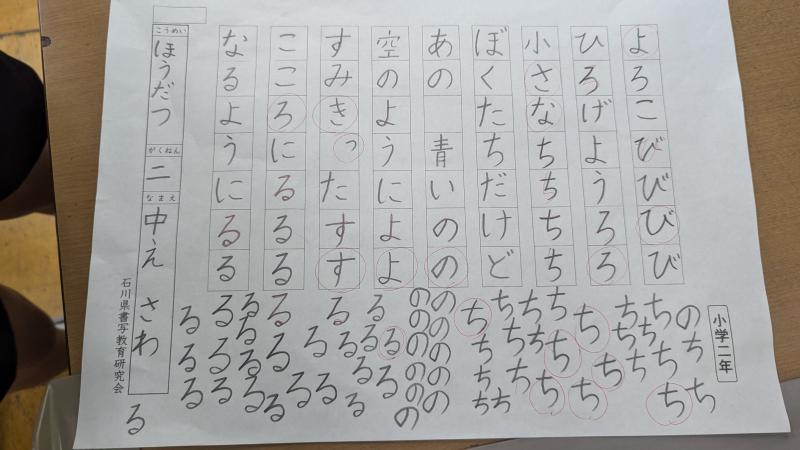 よろこびびびび
ひろげようろろ
小さなちちちち
ぼくたちだけど
あの 青いのの
空のようによよ
すみきったすす
こころにるるる
なるようにるる
小学二年
のちち
ちちち
ちちちち
ち
ちち
ちちち
ちちち
ちちち
ちちちち
ののののの
のののののの
るるる
るるる
るるる
るるる
るるるる
るるる
るるる
こうめい
ほうだつ
がくねん
二
なまえ
中え さわ
る
石川県書写教育研究会